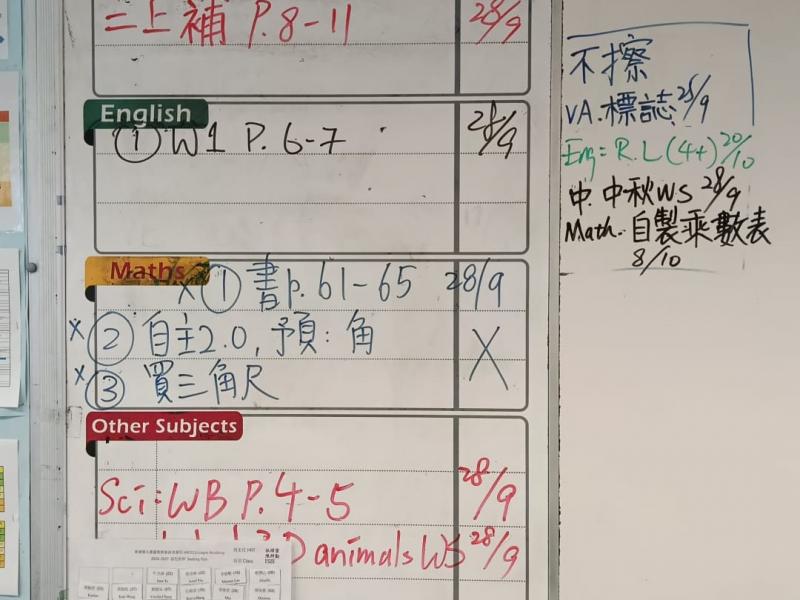 二上補 P.8-11 28/9
English
① W1 P.6-7 28/9
Maths
x ① 書p.61-65 28/9
x ② 自主2.0,預:角 X
x ③ 買三角尺
Other Subjects
Sci:WB P.4-5 28/9
D animals WS 28/9
不擦
VA.標誌 28/9
Eng= R.L (4+) 20/10
中. 中秋WS 28/9
Math. 自製乘數表
8/10